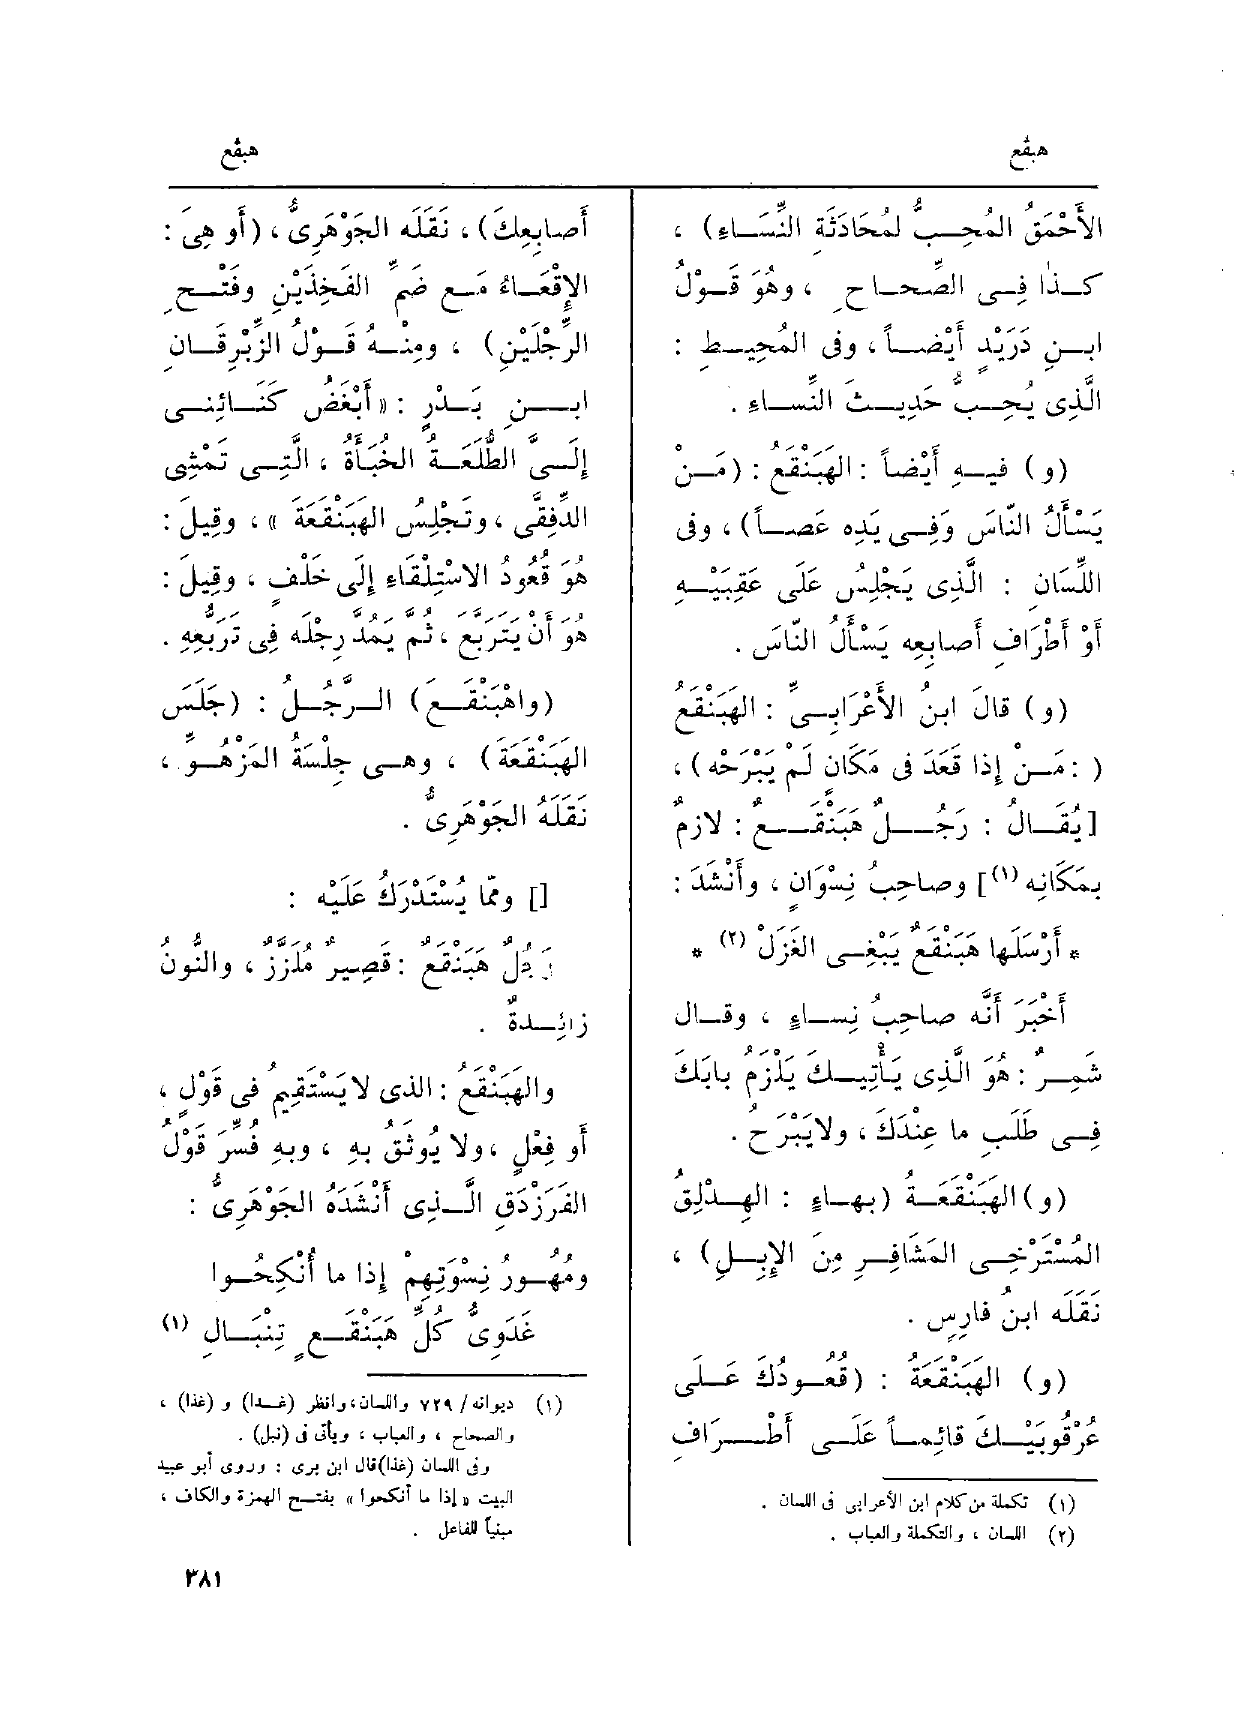 هبقع
هبقع
الأَحْمَقُ المُحِبُّ لمُحَادَثَةِ النِّسَاءِ) ،
كذا فِى الصّحاحِ ، وهُوَ قَوْلُ
ابنِ دُرَيْدٍ أَيْضاً ، وفى المُحِيطِ :
الَّذِى يُحِبُّ حَدِيثَ النِّساءِ .
(و) فيهِ أَيْضاً : الهَبَنْقَعُ : (مَنْ
يَسْأَلُ النّاسَ وَفِى يَدِه عَصاً) ، وفى
اللِّسَانِ : الَّذِى يَجْلِسُ عَلَى عَقِبَيْهِ
أَوْ أَطْرَافِ أَصابِعِه يَسْأَلُ النّاسَ .
(و) قالَ ابنُ الأَعْرَابِىِّ : الهَبَنْقَعُ
( : مَنْ إِذا قَعَدَ فى مَكَانٍ لَمْ يَبْرَحْه) ،
[يُقَالُ : رَجُلٌ هَبَنْقَعٌ : لازِمٌ
بمَكَانِه (١)] وصاحِبُ نِسْوَانٍ ، وأَنْشَدَ :
* أَرْسَلَها هَبَنْقَعٌ يَبْغِى الغَزَلْ (٢) *
أَخْبَرَ أَنَّه صاحِبُ نِساءٍ ، وقال
شَمِرٌ : هُوَ الَّذِى يَأْتِيكَ يَلْزَمُ بابَكَ
فِى طَلَبِ ما عِنْدَكَ ، ولايَبْرَحُ .
(و)الهَبَنْقَعَةُ (بهاءٍ : الهِدْلِقُ
المُسْتَرْخِى المَشَافِرِ مِنَ الإِبِلِ) ،
نَقَلَه ابنُ فارِسٍ .
(و) الهَبَنْقَعَةُ : (قُعُودُكَ عَلَى
عُرْقُوبَيْكَ قائِماً عَلَى أَطْرَافِ
(١) تكملة من كلام ابن الأعرابى فى اللسان .
(٢) اللسان ، والتكملة والعباب .
أَصابِعِكَ) ، نَقَلَه الجَوْهَرِىُّ ، (أَو هِىَ :
الإِقْعَاءُ مَع ضَمِّ الفَخِذَيْنِ وفَتْحِ
الرِّجْلَيْنِ) ، ومِنْهُ قَوْلُ الزِّبْرِقَانِ
ابنِ بَدْرٍ : «أَبْغَضُ كَنَائِنِى
إِلىَّ الطُّلَعَةُ الخُبَأَةُ ، الَّتِى تَمْشِى
الدِّفِقَّى ، وتَجْلِسُ الهَبَنْقَعَةَ » ، وقِيلَ :
هُوَ قُعُودُ الاسْتِلْقَاءِ إِلَى خَلْفٍ ، وقِيلَ :
هُوَ أَنْ يَتَرَبَّعَ ، ثُمَّ يَمُدَّ رِجْلَه فِى تَرَبُّعِهِ .
(واهْبَنْقَعَ) الرَّجُلُ : (جَلَسَ
الهَبَنْقَعَةَ) ، وهى جِلْسَةُ المَزْهُوِّ ،
نَقَلَهُ الجَوْهَرِىُّ .
[] وممّا يُسْتَدْرَكُ عَلَيْه :
رَجُلٌ هَبَنْقَعٌ : قَصِيرٌ مُلَزَّزٌ ، والنُّونُ
زائِدةٌ .
والهَبَنْقَعُ : الذى لا يَسْتَقِيمُ فى قَوْلٍ ،
أَو فِعْلٍ ، ولا يُوثَقُ بِهِ ، وبِهِ فُسِّرَ قَوْلُ
الفَرَزْدَقِ الَّذِى أَنْشَدَهُ الجَوْهَرِىُّ :
ومُهُورُ نِسْوَتِهِمْ إِذا ما أُنْكِحُوا
غَدَوِىُّ كُلِّ هَبَنْقَعٍ تِنْبَالِ (١)
(١) ديوانه / ٧٢٩ واللسان، وانظر (غدا) و (غذا) ،
والصحاح ، والعباب ، ويأتى فى (نبل) .
وفى اللسان (غذا)قال ابن برى : وروى أبو عبيد
البيت «إذا ما أنكحوا» بفتح الهمزة والكاف ،
مبنياً للفاعل .
٣٨١